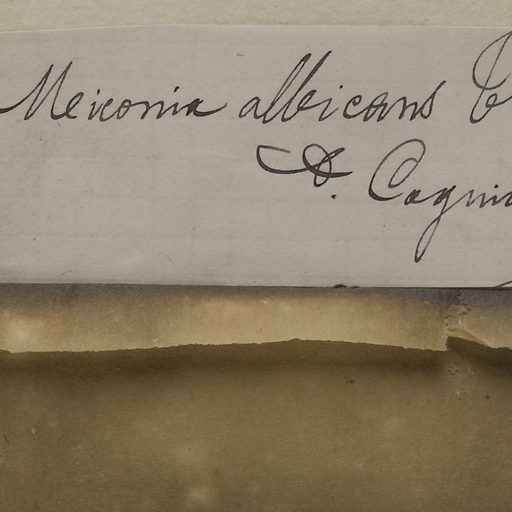 Meiconia albicans
A. Cogni